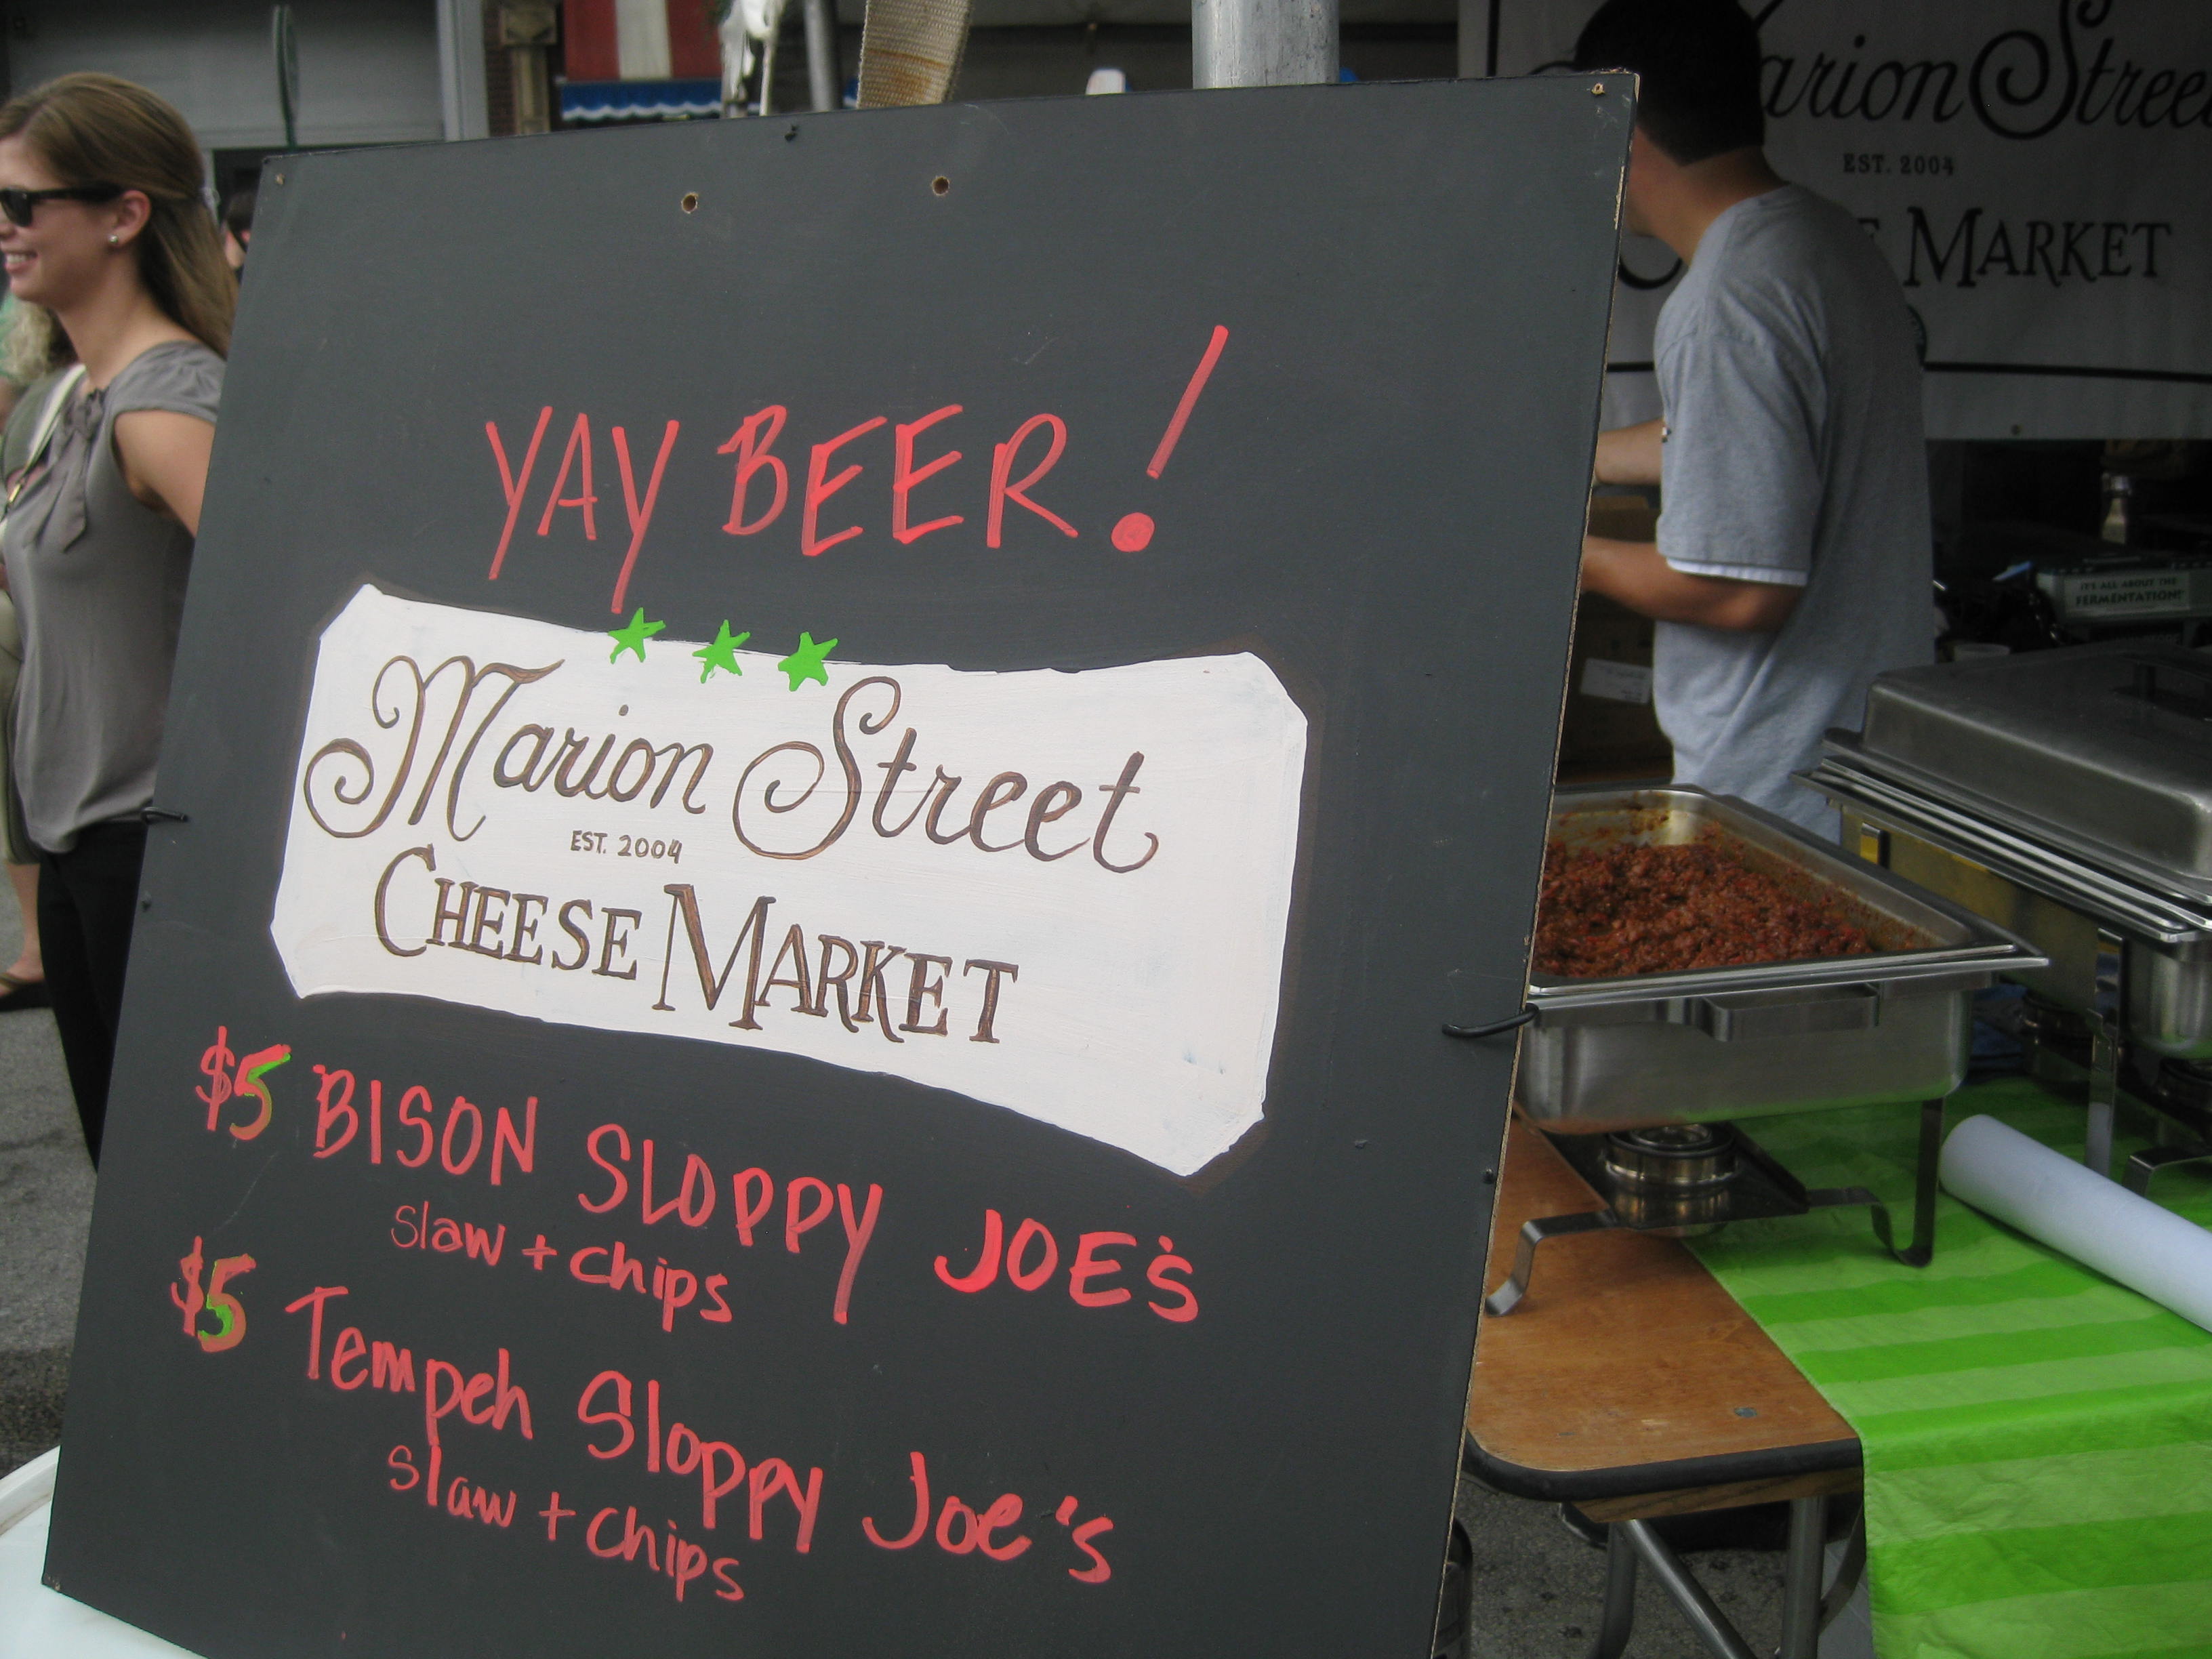 YAY BEER!
Marion Street
EST. 2004
CHEESE MARKET
$5 BISON SLOPPY JOE'S
slaw + chips
$5 Tempeh Sloppy Joe's
slaw + chips
arion Stree
EST. 2004
E MARKET
IT'S ALL ABOUT THE
FERMENTATION!